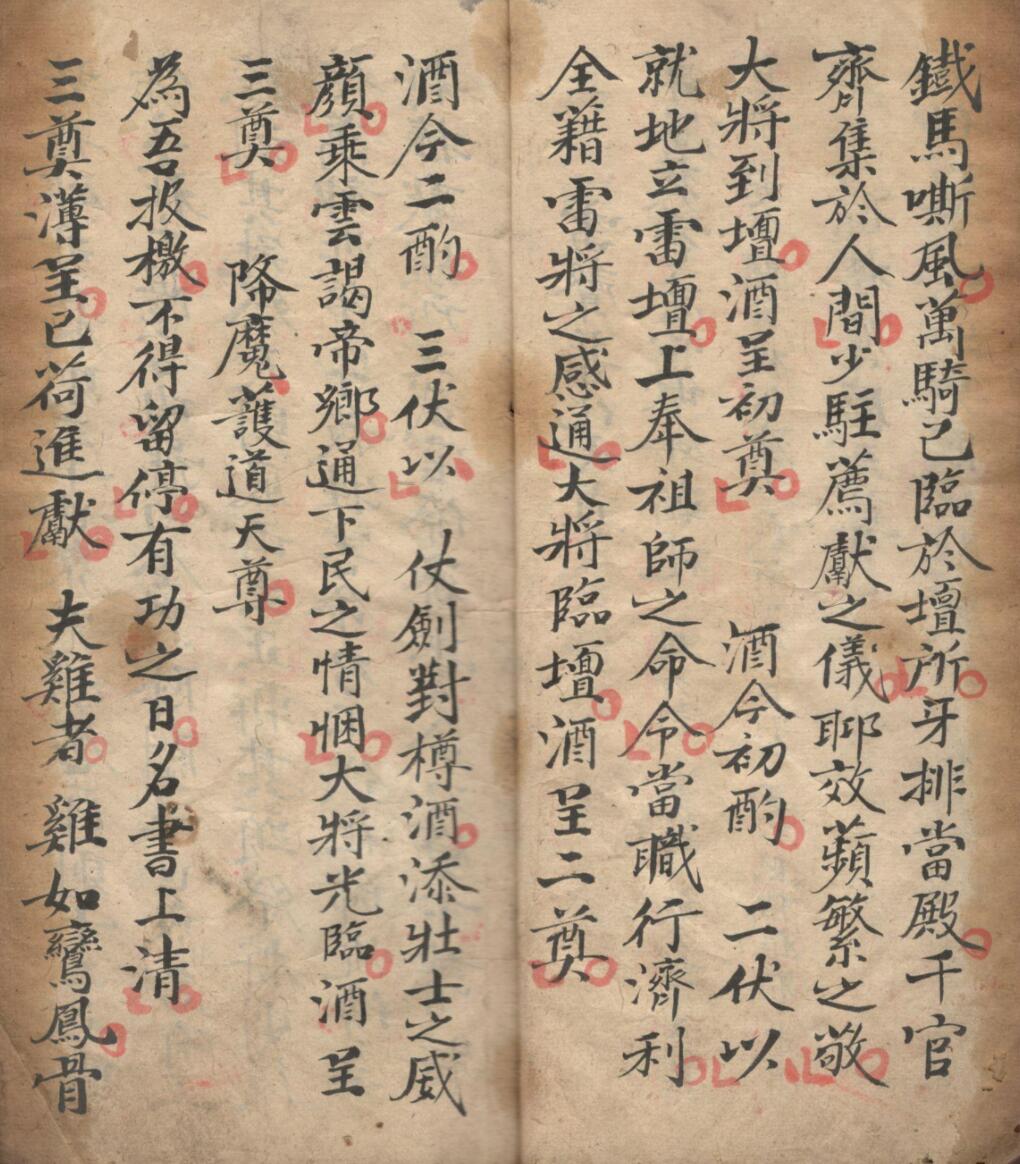 鐵馬嘶風萬騎已臨於壇所牙排當殿千官
齊集於人間少駐薦獻之儀耶效蘋繁之敬
大將到壇酒呈初奠　酒今初酌　二伏以
就地立雷壇上奉祖師之命令當職行濟利
全藉雷將之感通大將臨壇酒呈二奠
酒今二酌　三伏以　仗劍對樽酒添壯士之威
顏乘雲謁帝鄉通下民之情悃大將光臨酒呈
三奠　降魔護道天尊
為吾投檄不得留停有功之日名書上清
三奠薄呈已荷進獻　夫雞者　雞如鸞鳳骨